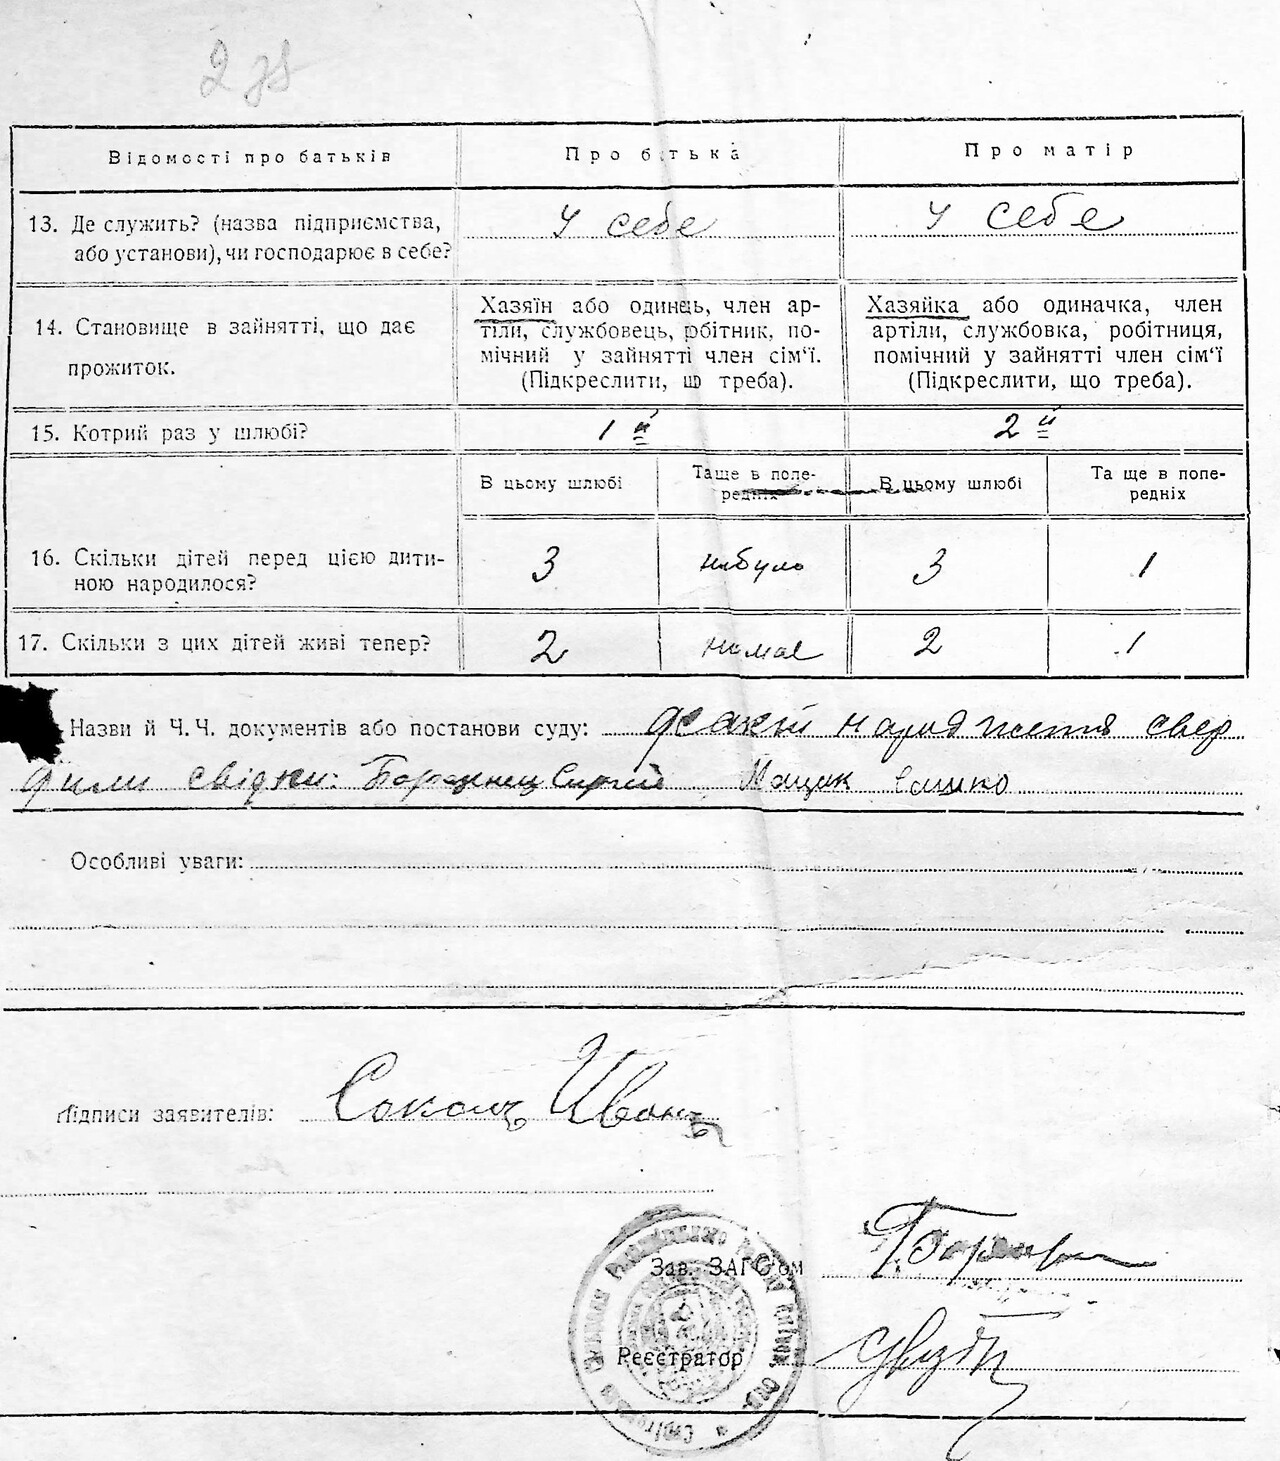 2 зв
Відомості про батьків
Про батька
Про матір
13. Де служить? (назва підприємства,
або установи), чи господарює в себе?
У себе
У себе
14. Становище в зайнятті, що дає
прожиток.
Хазяїн або одинець, член ар-
тіли, службовець, робітник, по-
мічний у зайнятті член сім'ї.
(Підкреслити, що треба).
Хазяйка або одиначка, член
артіли, службовка, робітниця,
помічний у зайнятті член сім'ї
(Підкреслити, що треба).
15. Котрий раз у шлюбі?
1 й
2 й
В цьому шлюбі
Та ще в попе-
редніх
В цьому шлюбі
Та ще в попе-
редніх
16. Скільки дітей перед цією дити-
ною народилося?
3
небуло
3
1
17. Скільки з цих дітей живі тепер?
2
немає
2
1
Назви й Ч. Ч. документів або постанови суду:
свідки: Сергій Мацак
Особливі уваги:
Підписи заявителів: Соколъ Иванъ
Зав. ЗАГС'ом
Реєстратор